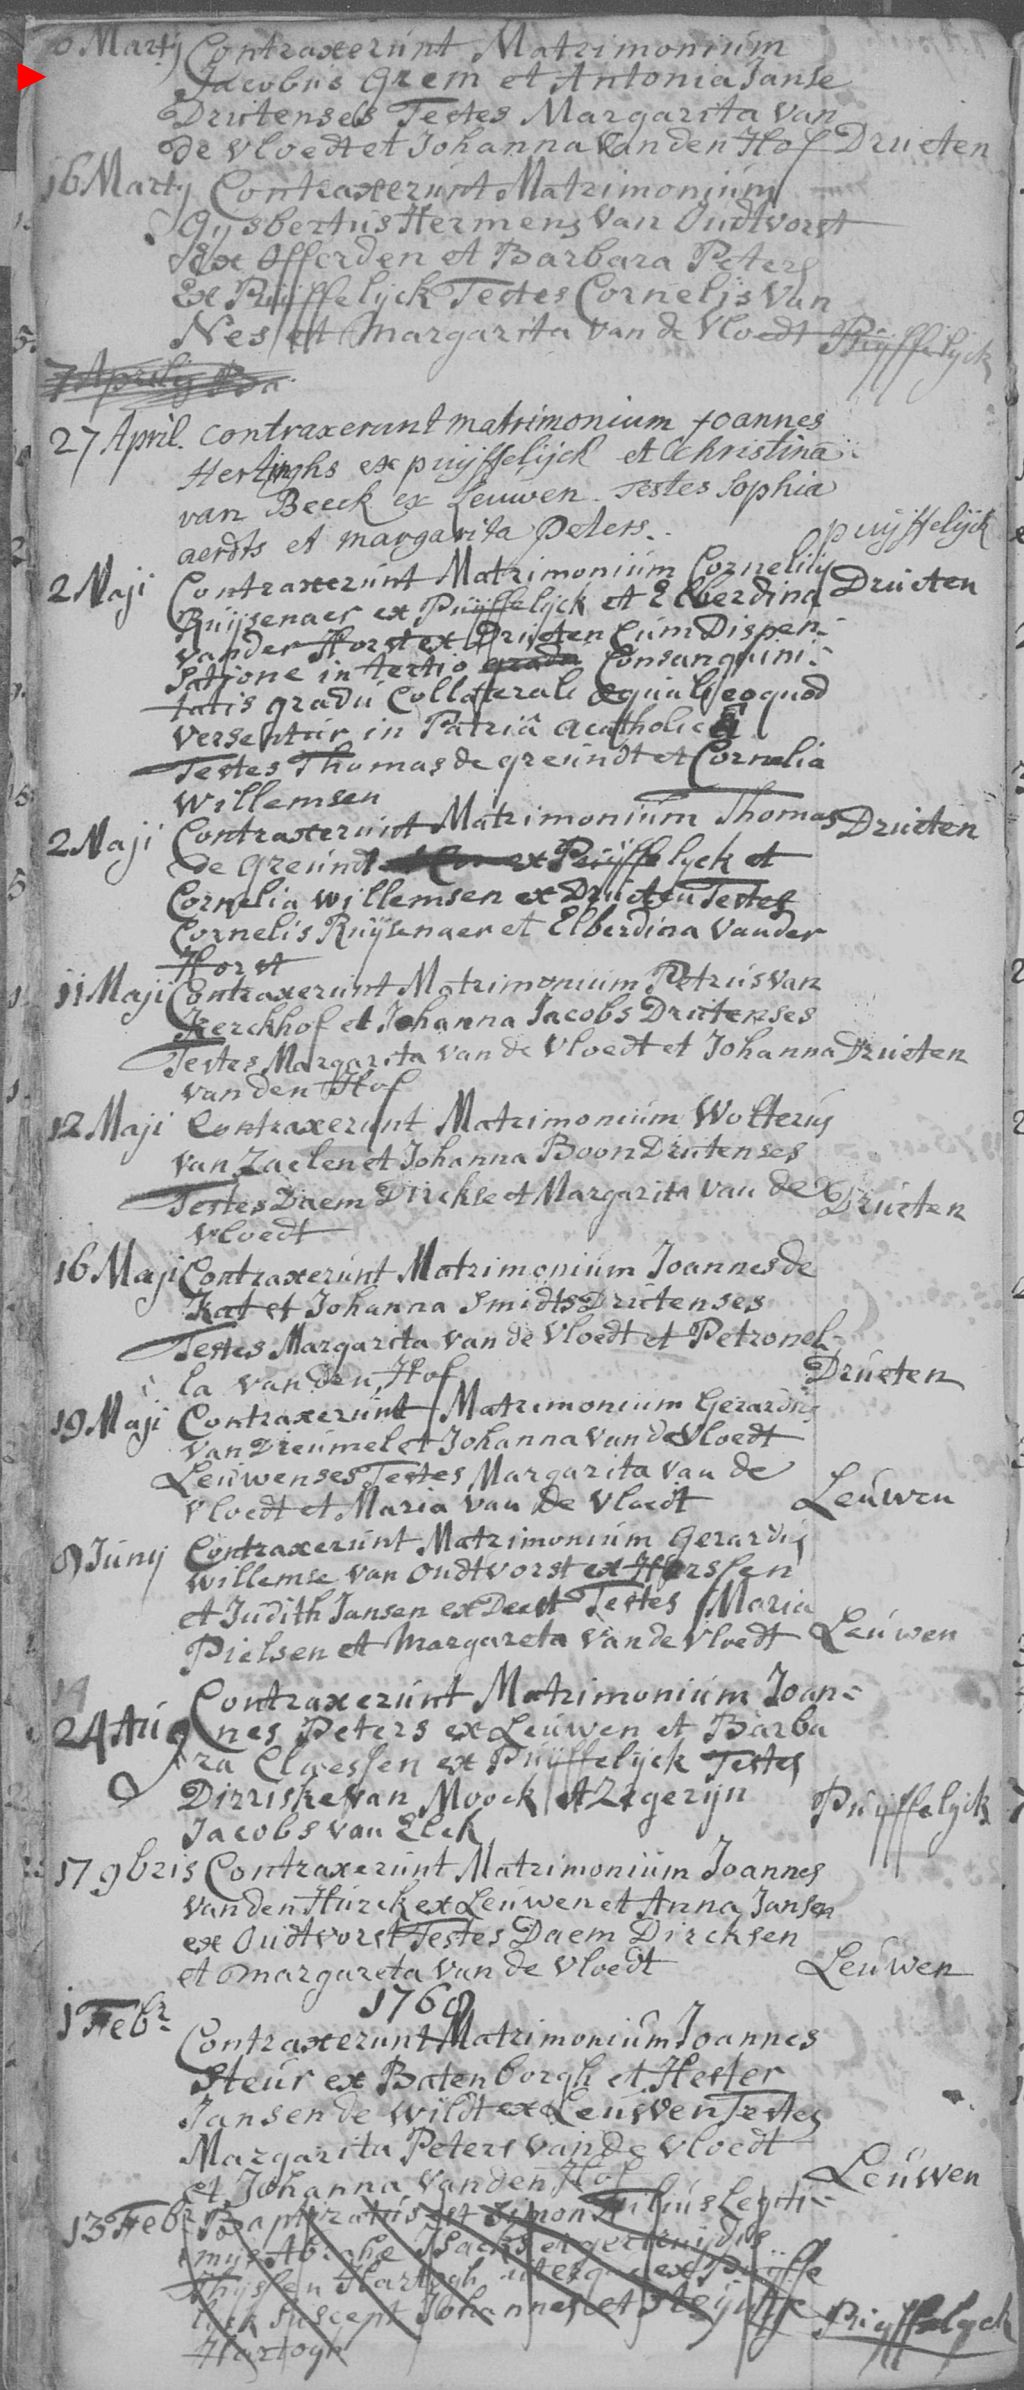 Martij Contraxerunt Matrimonium
Jacobus Grem et Antonia Janse
Drutenses Testes Margarita van
de Vloedt et Johanna van den Hof Drueten
16 Martij Contraxerunt Matrimonium
Gysbertus Hermens van Oudtvorst
Ex Afferden et Barbara Peters
Ex Puijffelijck Testes Cornelis Van
Nes et Margarita van de Vloedt Puijffelijck
7 Aprilis Ba
27 April. contraxerunt matrimonium Joannes
ex puijffelijck et Christina
van Beeck ex Leuwen. Testes Sophia
aerdts et margarita peters. puijffelijck
2 Maji Contraxerunt Matrimonium Cornelius Drueten
Ruijsenaer ex Puijffelijck et Elberdina
vander Horst ex Drueten Cum Dispen-
satione in tertio gradu Consanquini-
tatis gradu Collaterali equali eo quod
versentur in Patria acatholica
Testes Thomas de greundt et Cornelia
Willemsen
2 Maji Contraxerunt Matrimonium Thomas Drueten
de Greundt ex Puijffelyck et
Cornelia Willemsen ex Drueten Testes
Cornelis Ruijsenaer et Elberdina Vander
Horst
11 Maji Contraxerunt Matrimonium Petrus van
Kerckhof et Johanna Jacobs Drutenses
Testes Margarita van de Vloedt et Johanna Drueten
van den Hof
12 Maji Contraxerunt Matrimonium Wolterus
van Zaelen et Johanna Boon Drutenses
Testes Daem Dirckse et Margarita van de Drueten
Vloedt
16 Maji Contraxerunt Matrimonium Joannes de
Kat et Johanna Smidts Drutenses
Testes Margarita van de Vloedt et Petronel-
la van den Hof Drueten
19 Maji Contraxerunt Matrimonium Gerardus
van Dreumel et Johanna van de Vloedt
Leuwenses Testes Margarita van de
Vloedt et Maria van de Vloedt Leuwen
8 Juny Contraxerunt Matrimonium Gerardus
Willemse van Oudtvorst ex
et Judith Jansen ex Deest Testes Maria
Pielsen et Margareta van de Vloedt Leuwen
24 Aug Contraxerunt Matrimonium Joan-
nes Peters ex Leuwen et Barba
ra Claessen ex Puijffelijck Testes
Dirriske van Moock et Zegerijn Puijffelijck
Jacobs van Elck
17 9bris Contraxerunt Matrimonium Joannes
van den Hurck ex Leuwen et Anna Jansen
ex Oudtvorst Testes Daem Dircksen
et margareta van de Vloedt Leuwen
1760
1 Febr Contraxerunt Matrimonium Joannes
Steur ex Batenborgh et Hester
Jansen de Wildt ex Leuwen Testes
Margarita Peters van de Vloedt
et Johanna van den Hof Leuwen
13 Febr Baptizatus est Simon Filius Legiti-
mus Abrahe Isacks et gertruijdis
Thyssen Hartogh uterque ex Puijffe
lick Suscept Johannes et Puijffelyck
Hartogh